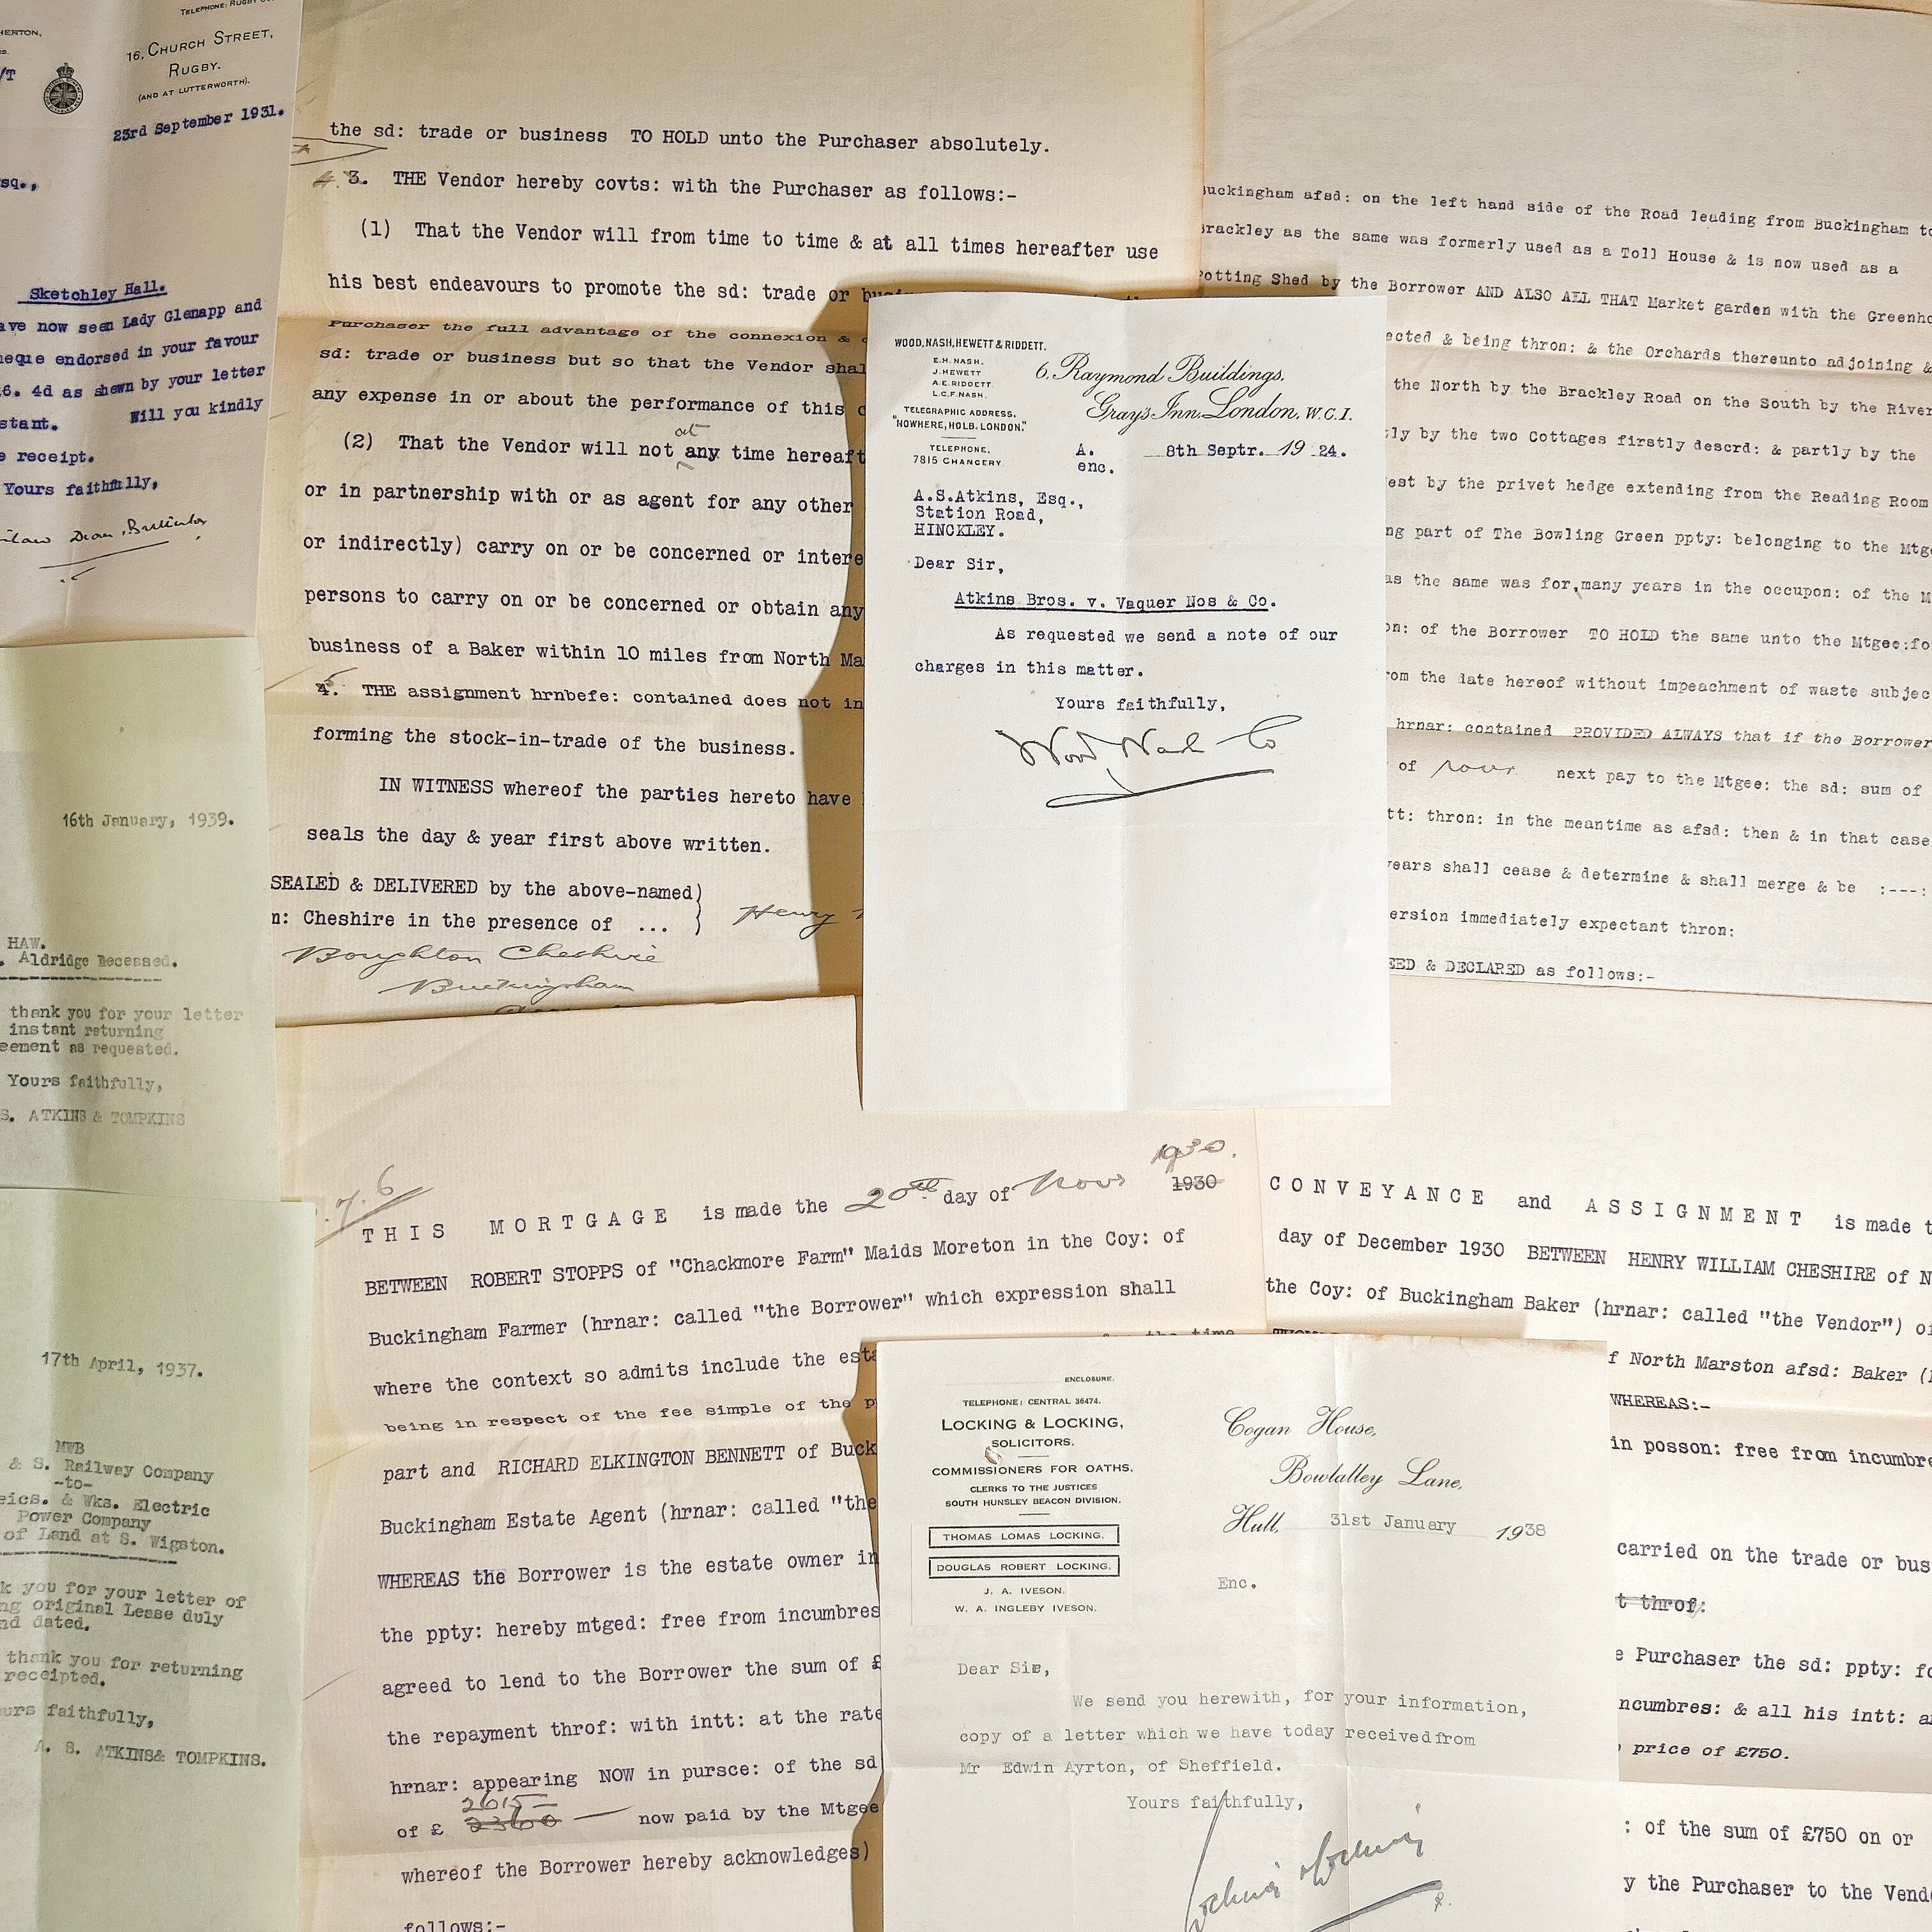 TELEPHONE: RUGBY
16, CHURCH STREET,
RUGBY.
(AND AT LUTTERWORTH).
23rd September 1931.
Sketchley Hall.
now seen Lady Glenapp and
endorsed in your favour
6. 4d as shewn by your letter
Will you kindly
receipt.
Yours faithfully,
the sd: trade or business TO HOLD unto the Purchaser absolutely.
3. THE Vendor hereby covts: with the Purchaser as follows:-
(1) That the Vendor will from time to time & at all times hereafter use
his best endeavours to promote the sd: trade or
Purchaser the full advantage of the connexion &
sd: trade or business but so that the Vendor
any expense in or about the performance of this
at
(2) That the Vendor will not any time
or in partnership with or as agent for any other
or indirectly) carry on or be concerned or
persons to carry on or be concerned or obtain any
business of a Baker within 10 miles from North
4. THE assignment hrnbefe: contained does not
forming the stock-in-trade of the business.
IN WITNESS whereof the parties hereto have
seals the day & year first above written.
SEALED & DELIVERED by the above-named)
Cheshire in the presence of ... )
Henry
Boughton Cheshire
Buckingham
Buckingham afsd: on the left hand side of the Road leading from Buckingham to
Brackley as the same was formerly used as a Toll House & is now used as a
Potting Shed by the Borrower AND ALSO ALL THAT Market garden with the
& being thron: & the Orchards thereunto adjoining &
the North by the Brackley Road on the South by the River
by the two Cottages firstly descrd: & partly by the
by the privet hedge extending from the Reading Room
part of The Bowling Green ppty: belonging to the
as the same was for many years in the occupon: of the
of the Borrower TO HOLD the same unto the Mtgee:
the date hereof without impeachment of waste
hrnar: contained PROVIDED ALWAYS that if the Borrower
of next pay to the Mtgee: the sd: sum of
thron: in the meantime as afsd: then & in that case
years shall cease & determine & shall merge & be :---:
immediately expectant thron:
& DECLARED as follows:-
WOOD, NASH, HEWETT & RIDDETT.
E.H. NASH.
J. HEWETT
A.E. RIDDETT.
L.C.F. NASH.
TELEGRAPHIC ADDRESS,
"NOWHERE, HOLB, LONDON."
TELEPHONE,
7815 CHANCERY
6, Raymond Buildings,
Grays Inn, London, W.C.1.
A.
enc.
8th Septr. 1924.
A.S.Atkins, Esq.,
Station Road,
HINCKLEY.
Dear Sir,
Atkins Bros. v. Vaquer Nos & Co.
As requested we send a note of our
charges in this matter.
Yours faithfully,
Wood Nash & Co
16th January, 1939.
HAW.
Aldridge Deceased.
thank you for your letter
instant returning
as requested.
Yours faithfully,
ATKINS & TOMPKINS
17th April, 1937.
MWB
& S. Railway Company
-to-
& Wks. Electric
Power Company
of Land at S. Wigston.
you for your letter of
original Lease duly
dated.
thank you for returning
receipted.
faithfully,
A. S. ATKINS& TOMPKINS.
1930.
THIS MORTGAGE is made the 20th day of Novr 1930
BETWEEN ROBERT STOPPS of "Chackmore Farm" Maids Moreton in the Coy: of
Buckingham Farmer (hrnar: called "the Borrower" which expression shall
where the context so admits include the
being in respect of the fee simple of the
part and RICHARD ELKINGTON BENNETT of
Buckingham Estate Agent (hrnar: called "the
WHEREAS the Borrower is the estate owner in
the ppty: hereby mtged: free from incumbres
agreed to lend to the Borrower the sum of £
the repayment throf: with intt: at the rate
hrnar: appearing NOW in pursce: of the sd
2615
of £ 2360 now paid by the Mtgee
whereof the Borrower hereby acknowledges)
follows:-
CONVEYANCE and ASSIGNMENT is made
day of December 1930 BETWEEN HENRY WILLIAM CHESHIRE of
the Coy: of Buckingham Baker (hrnar: called "the Vendor")
North Marston afsd: Baker
WHEREAS:-
in posson: free from
carried on the trade or
throf:
Purchaser the sd: ppty:
& all his intt:
price of £750.
: of the sum of £750 on or
the Purchaser to the
ENCLOSURE.
TELEPHONE: CENTRAL 36474.
LOCKING & LOCKING,
SOLICITORS.
COMMISSIONERS FOR OATHS.
CLERKS TO THE JUSTICES
SOUTH HUNSLEY BEACON DIVISION.
THOMAS LOMAS LOCKING.
DOUGLAS ROBERT LOCKING.
J. A. IVESON.
W. A. INGLEBY IVESON.
Cogan House,
Bowlalley Lane,
Hull, 31st January 1938
Enc.
Dear Sir,
We send you herewith, for your information,
copy of a letter which we have today received from
Mr Edwin Ayrton, of Sheffield.
Yours faithfully,